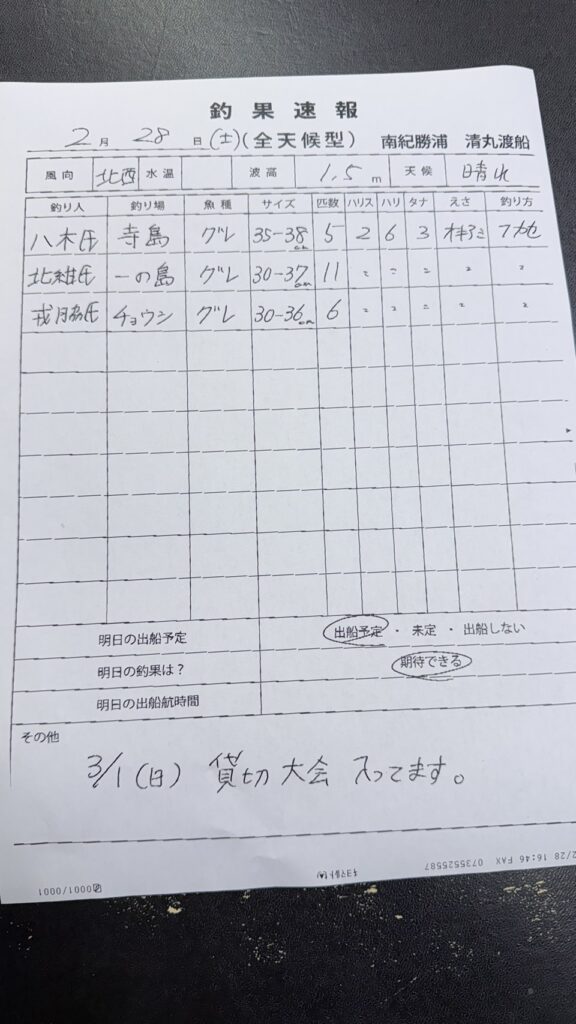 釣果速報
2月 28日(土)(全天候型) 南紀勝浦 清丸渡船
風向 北西 水温 波高 1.5m 天候 晴れ
釣り人 釣り場 魚種 サイズ 匹数 ハリス ハリ タナ えさ 釣り方
八木氏 寺島 グレ 35-38cm 5 2 6 3 オキアミ フカセ
一の島 グレ 30-37cm 11 〃 〃 〃 〃 〃
戎脇氏 チョウシ グレ 30-36cm 6 〃 〃 〃 〃 〃
明日の出船予定 出船予定 ・ 未定 ・ 出船しない
明日の釣果は? 期待できる
明日の出船航時間
その他
3/1(日) 貸切大会 入ってます。
2/28 16:46 FAX 0735525587 キヨマルト(A) 0001/0001